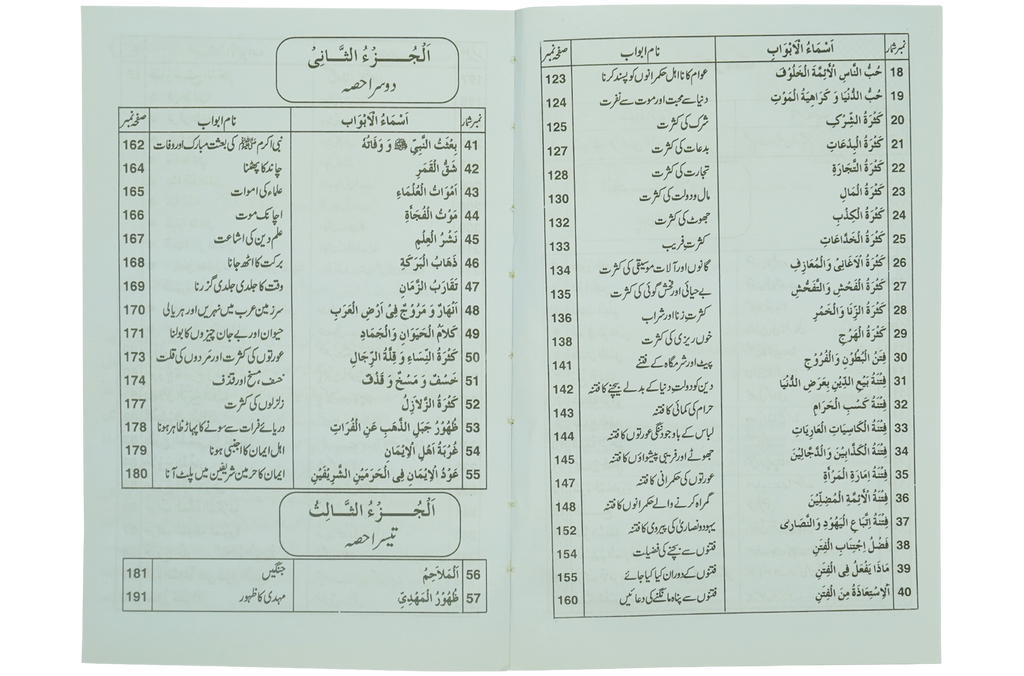 نمبر شمار اَسْمَاءُ الْاَبْوَابِ نام ابواب صفحہ نمبر
18 حُبُّ النَّاسِ الْاَئِمَّةَ الْخَلُوْفَ عوام کا نااہل حکمرانوں کو پسند کرنا 123
19 حُبُّ الدُّنْيَا وَ كَرَاهِيَةُ الْمَوْتِ دنیا سے محبت اور موت سے نفرت 124
20 كَثْرَةُ الشِّرْكِ شرک کی کثرت 125
21 كَثْرَةُ الْبِدْعَاتِ بدعات کی کثرت 127
22 كَثْرَةُ التِّجَارَةِ تجارت کی کثرت 128
23 كَثْرَةُ الْمَالِ مال و دولت کی کثرت 130
24 كَثْرَةُ الْكِذْبِ جھوٹ کی کثرت 132
25 كَثْرَةُ الْخَدَّاعَاتِ کثرتِ فریب 133
26 كَثْرَةُ الْاَغَانِىْ وَالْمُعَازِفِ گانوں اور آلات موسیقی کی کثرت 134
27 كَثْرَةُ الْفَحْشِ وَالتَّفَحُّشِ بے حیائی اور فحش گوئی کی کثرت 135
28 كَثْرَةُ الزِّنَا وَالْخَمْرِ کثرتِ زنا اور شراب 136
29 كَثْرَةُ الْهَرْجِ خوں ریزی کی کثرت 138
30 فِتَنُ الْبُطُوْنِ وَالْفُرُوْجِ پیٹ اور شرمگاہ کے فتنے 141
31 فِتْنَةُ بَيْعِ الدِّيْنِ بِعَرَضِ الدُّنْيَا دین کو دولت دنیا کے بدلے بیچنے کا فتنہ 142
32 فِتْنَةُ كَسْبِ الْحَرَامِ حرام کی کمائی کا فتنہ 143
33 فِتْنَةُ الْكَاسِيَاتِ الْعَارِيَاتِ لباس کے باوجود ننگی عورتوں کا فتنہ 144
34 فِتْنَةُ الْكَذَّابِيْنَ وَالدَّجَّالِيْنَ جھوٹے اور فریبی پیشواؤں کا فتنہ 145
35 فِتْنَةُ اِمَارَةِ الْمَرْأَةِ عورتوں کی حکمرانی کا فتنہ 147
36 فِتْنَةُ الْاَئِمَّةِ الْمُضِلِّيْنَ گمراہ کرنے والے حکمرانوں کا فتنہ 148
37 فِتْنَةُ اِتِّبَاعِ الْيَهُوْدِ وَالنَّصَارٰى یہود و نصاریٰ کی پیروی کا فتنہ 152
38 فَضْلُ اِجْتِنَابِ الْفِتَنِ فتنوں سے بچنے کی فضیلت 154
39 مَاذَا يَفْعَلُ فِى الْفِتَنِ فتنوں کے دوران کیا کیا جائے 155
40 اَلْاِسْتِعَاذَةُ مِنَ الْفِتَنِ فتنوں سے پناہ مانگنے کی دعائیں 160
اَلْجُزْءُ الثَّانِىْ
دوسرا حصہ
نمبر شمار اَسْمَاءُ الْاَبْوَابِ نام ابواب صفحہ نمبر
41 بِعْثَتُ النَّبِيِّ ﷺ وَ وَفَاتُهُ نبی اکرم ﷺ کی بعثت مبارک اور وفات 162
42 شَقُّ الْقَمَرِ چاند کا پھٹنا 164
43 اَمْوَاتُ الْعُلَمَاءِ علماء کی اموات 165
44 مَوْتُ الْفُجَأَةِ اچانک موت 166
45 نَشْرُ الْعِلْمِ علم دین کی اشاعت 167
46 ذَهَابُ الْبَرَكَةِ برکت کا اٹھ جانا 168
47 تَقَارُبُ الزَّمَانِ وقت کا جلدی جلدی گزرنا 169
48 اَنْهَارٌ وَ مَرُوْجٌ فِىْ اَرْضِ الْعَرَبِ سرزمین عرب میں نہریں اور ہریالی 170
49 كَلَامُ الْحَيَوَانِ وَالْجَمَادِ حیوان اور بے جان چیزوں کا بولنا 171
50 كَثْرَةُ النِّسَاءِ وَ قِلَّةُ الرِّجَالِ عورتوں کی کثرت اور مَردوں کی قلت 173
51 خَسْفٌ وَ مَسْخٌ وَ قَذْفٌ خسف، مسخ اور قذف 174
52 كَثْرَةُ الزَّلَازِلِ زلزلوں کی کثرت 177
53 ظُهُوْرُ جَبَلِ الذَّهَبِ عَنِ الْفُرَاتِ دریائے فرات سے سونے کا پہاڑ ظاہر ہونا 178
54 غُرْبَةُ اَهْلِ الْاِيْمَانِ اہل ایمان کا اجنبی ہونا 179
55 عَوْدُ الْاِيْمَانِ فِى الْحَرَمَيْنِ الشَّرِيْفَيْنِ ایمان کا حرمین شریفین میں پلٹ آنا 180
اَلْجُزْءُ الثَّالِثُ
تیسرا حصہ
56 اَلْمَلَاحِمُ جنگیں 181
57 ظُهُوْرُ الْمَهْدِيِّ مہدی کا ظہور 191